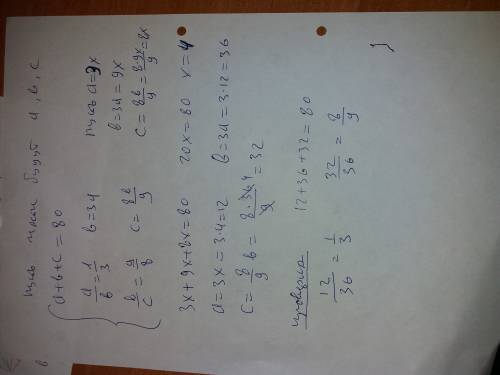 в
пусть числа будут a, в, c
a+в+c=80
a/в=1/3 в=3a пусть a=3x
в/c=9/8 c=8в/9 в=3a=9x
c=8в/9=8·9x/9=8x
3x+9x+8x=80 20x=80 x=4
a=3x=3·4=12 в=3a=3·12=36
c=8/9 в=8·36/9=32
проверка 12+36+32=80
12/36=1/3 32/36=8/9